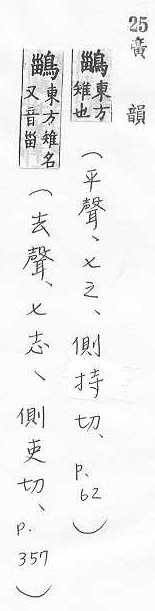 25廣韻
鶅東方雉也（平聲、七之、側持切、p.62）
鶅東方雉名又音甾（去聲、七志、側吏切、p.357）